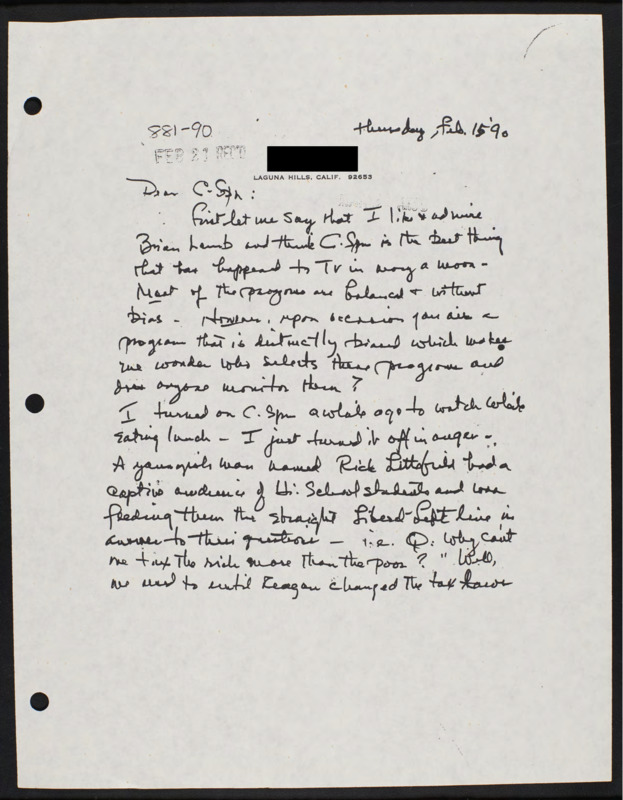 881-90
Thursday, Feb. 15 '90
FEB 21 REC'D
LAGUNA HILLS, CALIF. 92653
Dear C-Span:
First let me say that I like & admire
Brian Lamb and think C-Span is the best thing
that has happened to TV in many a moon -
Most of the programs are balanced & without
bias - However, upon occasion you air a
program that is distinctly biased which makes
me wonder who selects these programs and
does anyone monitor them?
I turned on C-Span awhile ago to watch while
eating lunch - I just turned it off in anger -.
A youngish man named Rick Littlefield had a
captive audience of Hi. School students and was
feeding them the straight Liberal-Left line in
answer to their questions - i.e. Q: Why can't
we tax the rich more than the poor? "Well,
we used to until Reagan changed the tax laws